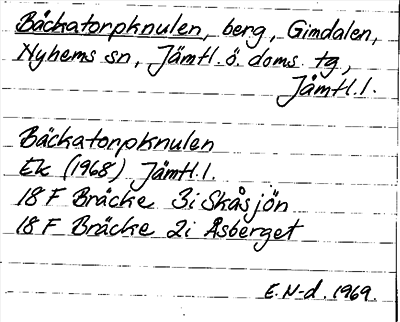 Bäckatorpknulen, berg, Gimdalen,
Nyhems sn, Jämtl. ö. doms. tg,
Jämtl. l.
Bäckatorpknulen
Ek (1968) Jämtl. l.
18 F Bräcke 3i Skåsjön
18 F Bräcke 2i Åsberget
E. N-d. 1969.